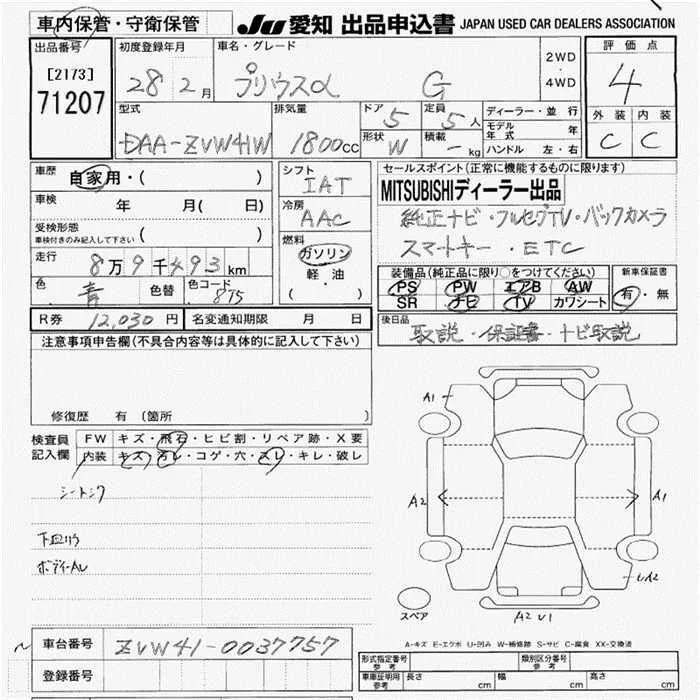 車内保管・守衛保管
JU 愛知 出品申込書 JAPAN USED CAR DEALERS ASSOCIATION
出品番号
[2173]
71207
初度登録年月
28 2月
車名・グレード
プリウスα G
2WD
・
4WD
評価点
4
外装 内装
C C
型式
DAA-ZVW41W
排気量
1800cc
ドア 5
形状 W
定員 5人
積載 - kg
ディーラー・並 行
モデル年式 年
ハンドル 左・右
車歴
自家用・( )
車検 年 月( 日)
受検形態
車検付きのみ記入して下さい ( )
走行 8万9千493km
色 青 色替 色コード 8T5
シフト
IAT
冷房
AAC
燃料
ガソリン
軽・油
( )
セールスポイント(正常に機能するものに限ります)
MITSUBISHIディーラー出品
純正ナビ・フルセグTV・バックカメラ
スマートキー・ETC
装備品(純正品に限り○をつけてください)
PS PW エアB AW
SR ナビ TV カワシート
新車保証書
有・無
R券 12,030円 名変通知期限 月 日
後日品
取説・保証書・ナビ取説
注意事項申告欄(不具合内容等は具体的に記入して下さい)
修復歴 有(箇所 )
検査員記入欄
FW キズ・飛石・ヒビ割・リペア跡・X要
内装 キズ・汚レ・コゲ・穴・スレ・キレ・破レ
シートシワ
ボディーAU
A1
A2
A1
A2
スペア
A2 U1
A-キズ E-エクボ U-凹み W-補修跡 S-サビ C-腐食 XX-交換済
車台番号 ZVW41-0037757
登録番号
形式指定番号 参考
類別区分番号 参考
車庫証明用 参考 長さ cm 幅 cm 高さ cm